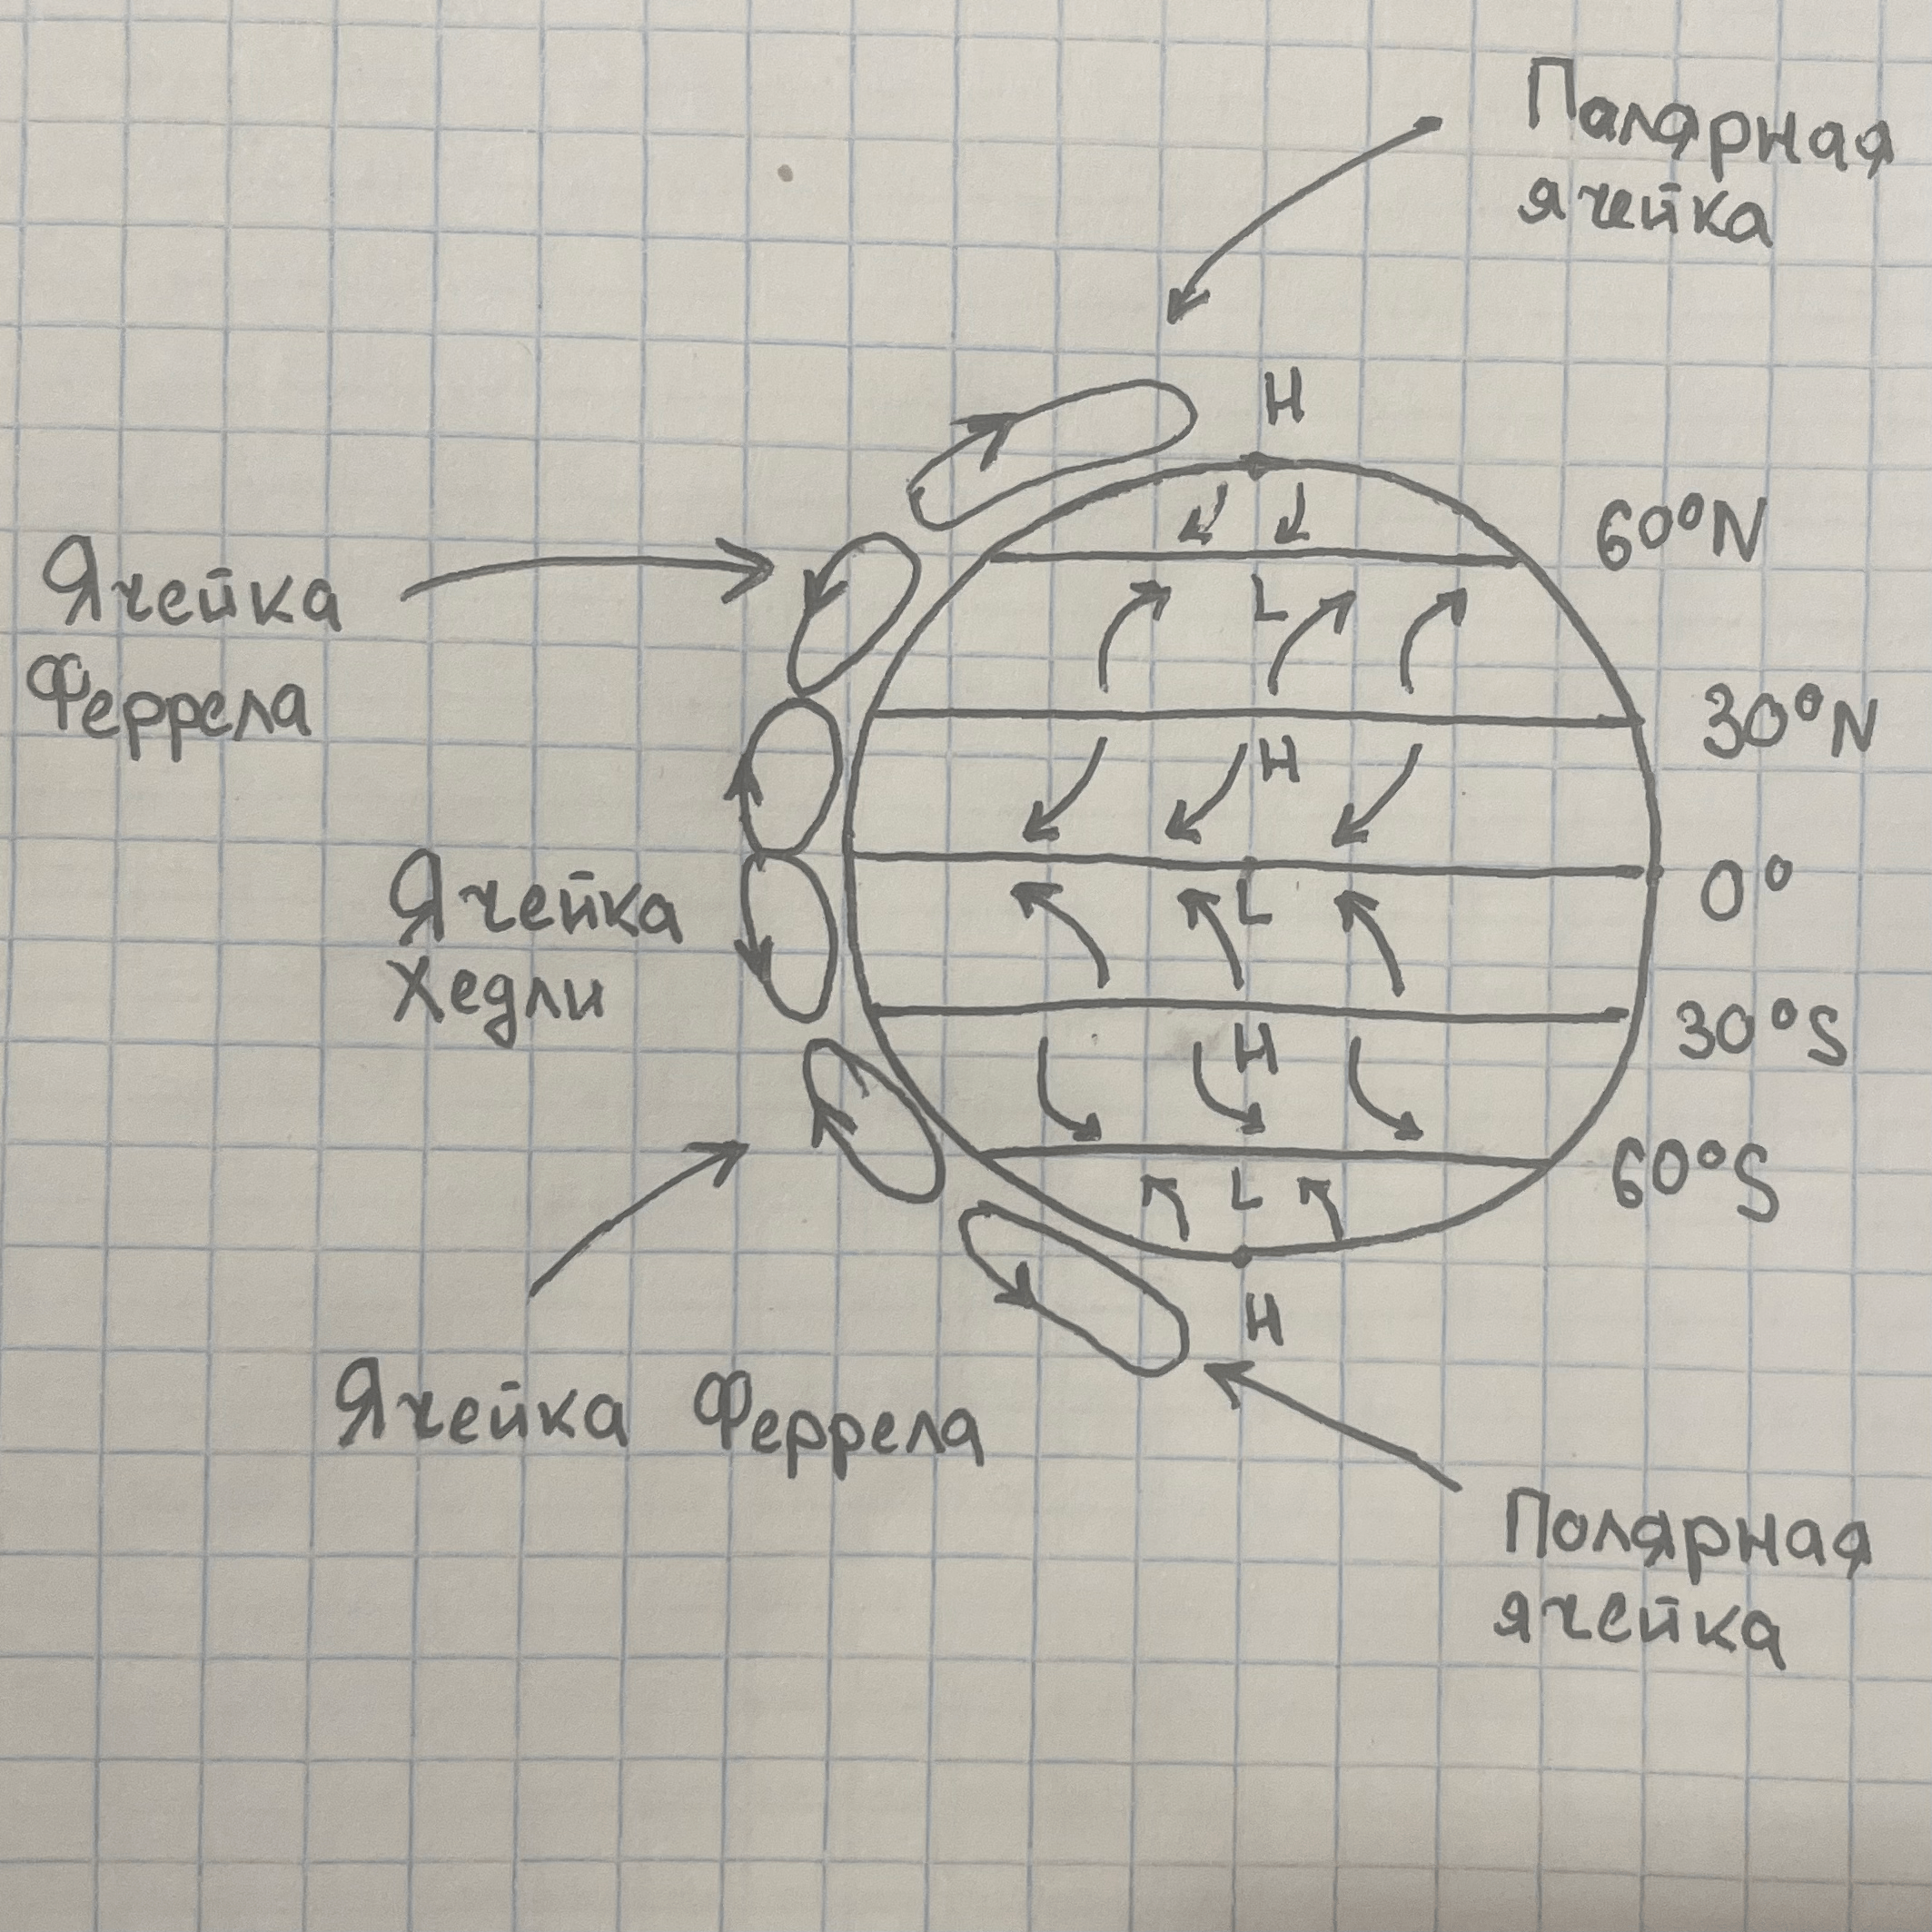 Полярная
ячейка
H
60°N
Ячейка
Феррела
L
30°N
H
0°
Ячейка
Хедли
L
30°S
H
60°S
L
H
Ячейка Феррела
Полярная
ячейка